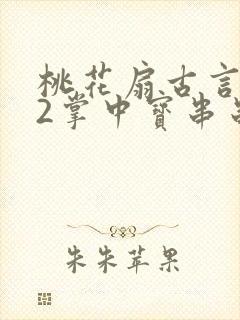 桃花扇古言
2掌中寳串
朱朱苹果